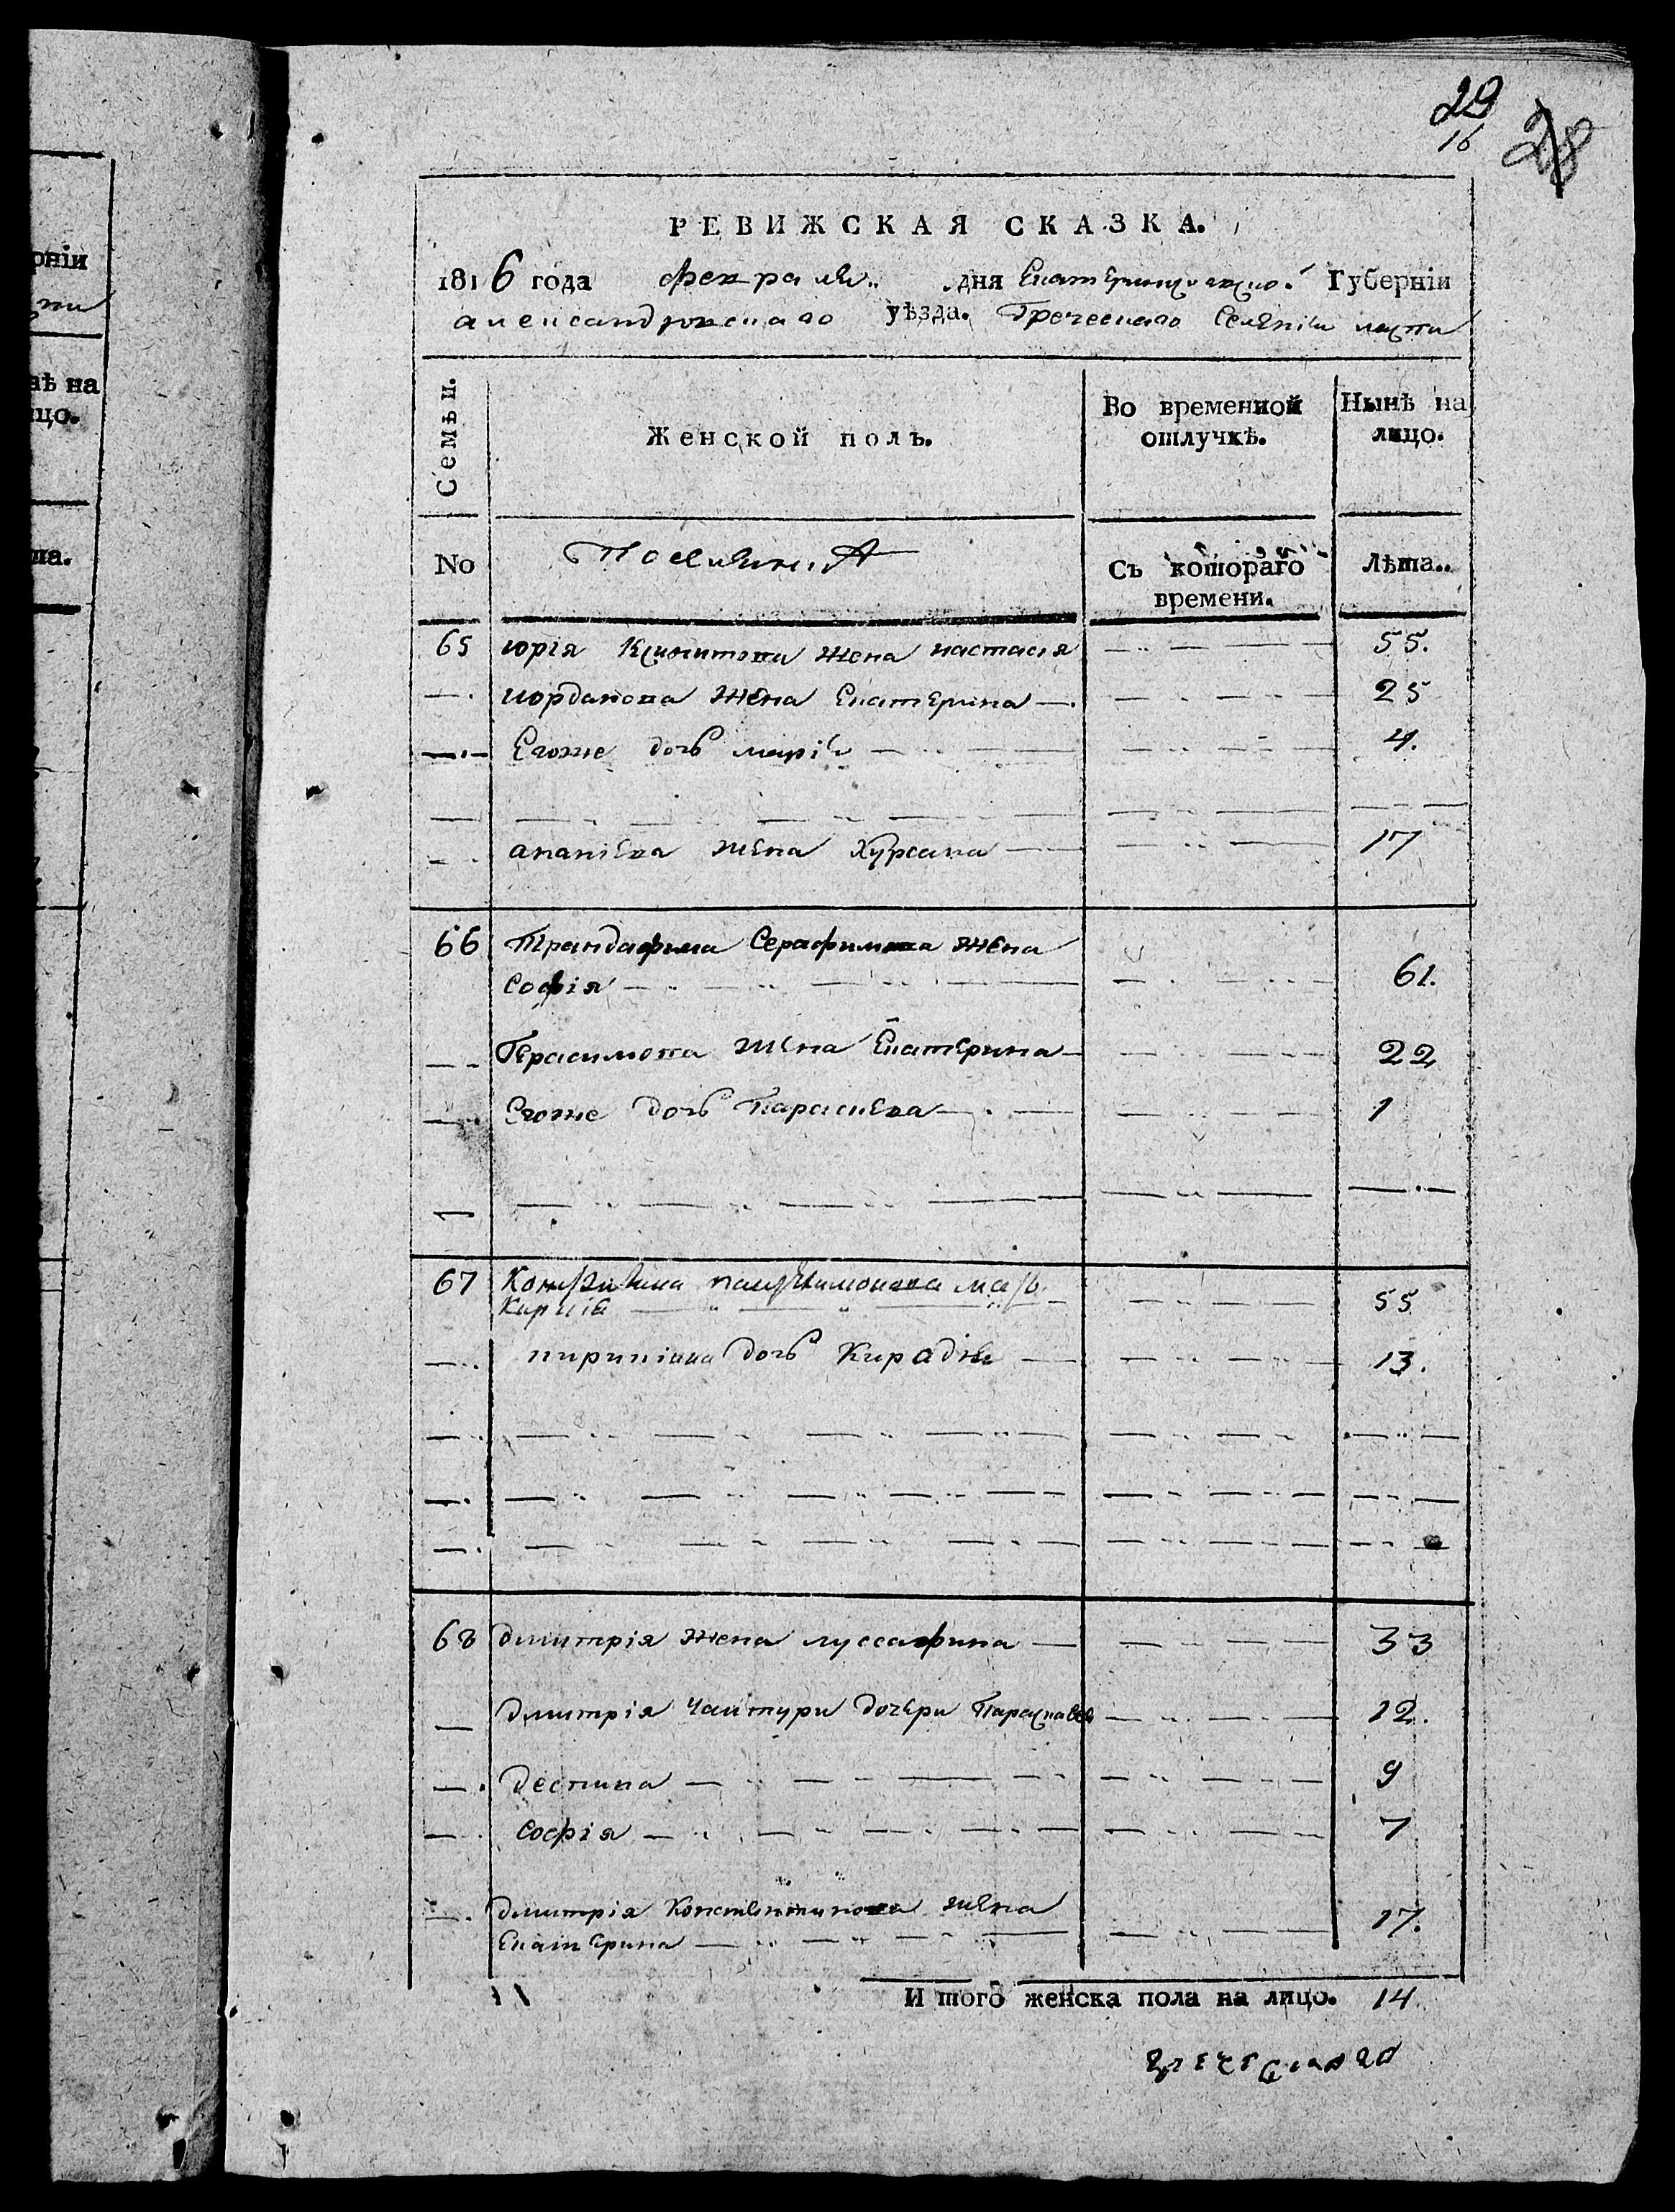 29
16
28
РЕВИЖСКАЯ СКАЗКА.
1816 года февраля дня Екатеринославской Губерніи
александровскаго уѣзда. Греческаго Селенія
Семьи.
Женской полъ.
Во временной отлучкѣ.
Нынѣ на лицо.
No
Поселяня
Съ котораго времени.
Лѣта..
65 юрія жена настасія 55.
иорданова жена Екатерина 25
Егоже дочь марія 4.
ананіева жена Хурсана 17
66 Трандафила Серафимова жена
софія 61.
Герасимова жена Екатерина 22
Егоже дочь Параскева 1
67 Константина пантелимонова мать
55
дочь 13.
68 дмитрія жена луссафина 33
дмитрія Чангури дочери 12.
деспина 9
софія 7
дмитрія Константинова жена
Екатерина 17.
И того женска пола на лицо. 14
греческаго